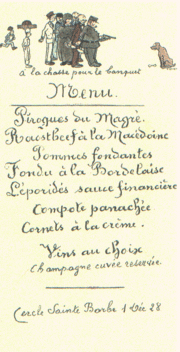 à la chasse pour le banquet
Menu.
Pirogues du Magrè.
Roastbeef à la Macédoine
Pommes fondantes
Fondu à la Bordelaise
Léporidés sauce financière
Compote panachée
Cornets à la crème.
Vins au choix
Champagne cuvée reservée.
Cercle Sainte Barbe 1 Déc 28